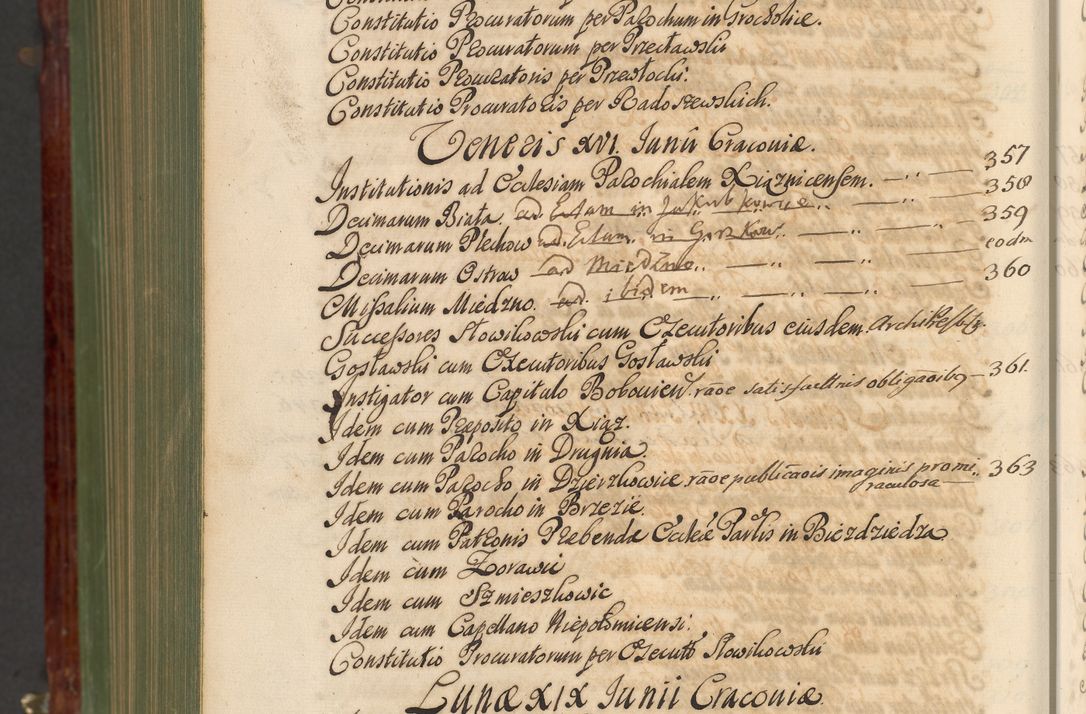 Constitutio Procuratorum per Parochum in Grocholice.
Constitutio Procuratorum per Przecławski
Constitutio Procuratoris per Przestocki.
Constitutio Procuratoris per Radoszewskich.
Veneris XVI. Junii Cracoviæ.
Institutionis ad Ecclesiam Parochialem Xiąznicensem. 357
Decimarum Biała ad Eclam in Jakubkowice 358
Decimarum Plechow ad Eclam in Gorzkow. 359
Decimarum Ostraw ad Miedzno eodm
Missalium Miedzno. ad ibidem 360
Successores Słowikowski cum Executoribus eiusdem Archi
Gosławski cum Executoribus Gosławski
Instigator cum Capitulo Boboview. rãoe satisfactnis obligãoibq 361.
Idem cum Præposito in Xiąz.
Idem cum Parocho in Drugnia
Idem cum Parocho in Dzierzkowice rãoe publicãois imaginis pro miraculosa 363
Idem cum Parocho in Brzezie.
Idem cum Patronis Præbendæ Eccleæ Parlis in Biezdziedza
Idem cum Zorawii
Idem cum Szmieszkowic
Idem cum Capellano Niepołomicensi.
Constitutio Procuratorum per Execut Słowikowski
Lunæ XIX Junii Cracoviæ